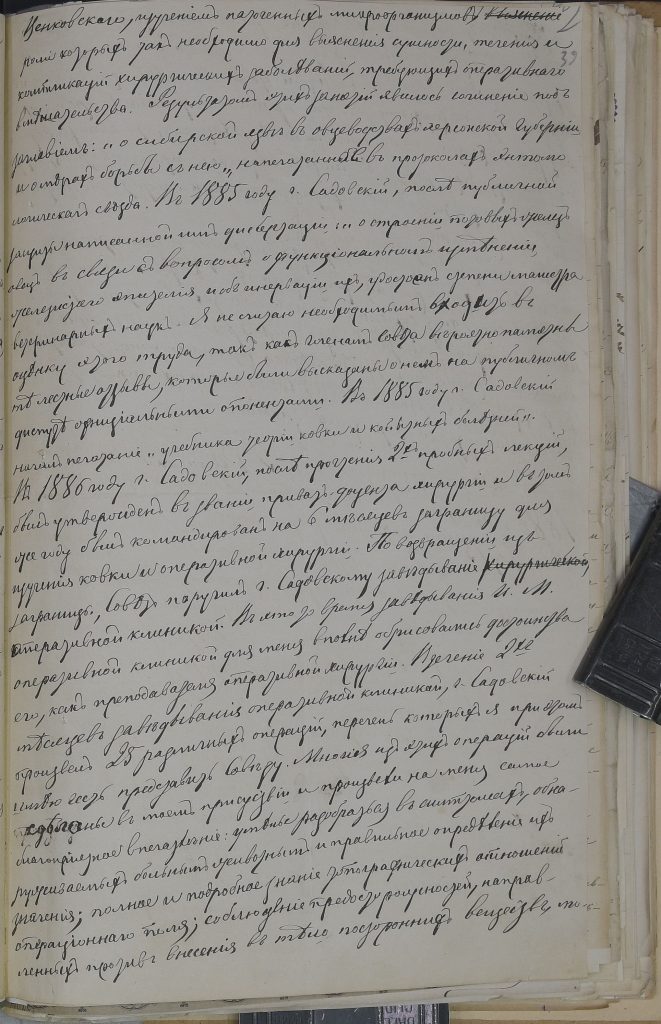 Ценковскаго, изученіемъ патогенныхъ микроорганизмовъ
39
роли которыхъ такъ необходимо для выясненія сущности, теченія и
комбинацій хирургическихъ заболѣваній, требующихъ оперативнаго
вмѣшательства. Результатомъ этихъ занятій явилось сочиненіе подъ
заглавіемъ: „о сибирской язвѣ въ овцеводствахъ Херсонской Губерніи
и о мѣрахъ борьбы съ нею„ напечатанное въ протоколахъ Энтомо
логическаго съѣзда. Въ 1885 году г. Садовскій, послѣ публичной
защиты написанной имъ диссертаціи: „о строеніи половыхъ
овецъ въ связи съ вопросомъ о функціональномъ
железистаго эпителія и объ инерваціи ихъ, удостоенъ степени магистра
ветеринарныхъ наукъ. Я не считаю необходимымъ входить въ
оцѣнку этого труда, такъ какъ членамъ Совѣта вѣроятно памятны
тѣ лестные отзывы, которые были высказаны о немъ на публичномъ
диспутѣ офиціальными опонентами. Въ 1885 году г. Садовскій
началъ печатаніе „учебника теоріи ковки и копытныхъ болѣзней„.
Въ 1886 году г. Садовскій, послѣ прочтенія 2хъ пробныхъ лекцій,
былъ утвержденъ въ званіи приватъ-доцента хирургіи и въ томъ
же году былъ командированъ на 6 мѣсяцевъ заграницу для
изученія ковки и оперативной хирургіи. По возвращеніи изъ
заграницы, Совѣтъ поручилъ г. Садовскому завѣдываніе хирургической
оперативной клиникой. Въ это время завѣдыванія И. М.
оперативной клиникой для меня вполнѣ обрисовались достоинства
его, какъ преподавателя оперативной хирургіи. Въ теченіе 2хъ
мѣсяцевъ завѣдыванія оперативной клиникой, г. Садовскій
произвелъ 25 различныхъ операцій, перечень которыхъ я при этомъ
имѣю честь представить Совѣту. Многія изъ этихъ операцій были
сдѣланы въ моемъ присутствіи и произвели на меня самое
благопріятное впечатлѣніе: умѣнье разобраться въ симптомахъ, обна-
руживаемыхъ больнымъ животнымъ и правильное опредѣленіе ихъ
значенія; полное и подробное знаніе топографическихъ отношеній
операціоннаго поля; соблюденіе предосторожностей, направ-
ленныхъ противъ внесенія въ тѣло постороннихъ веществъ,